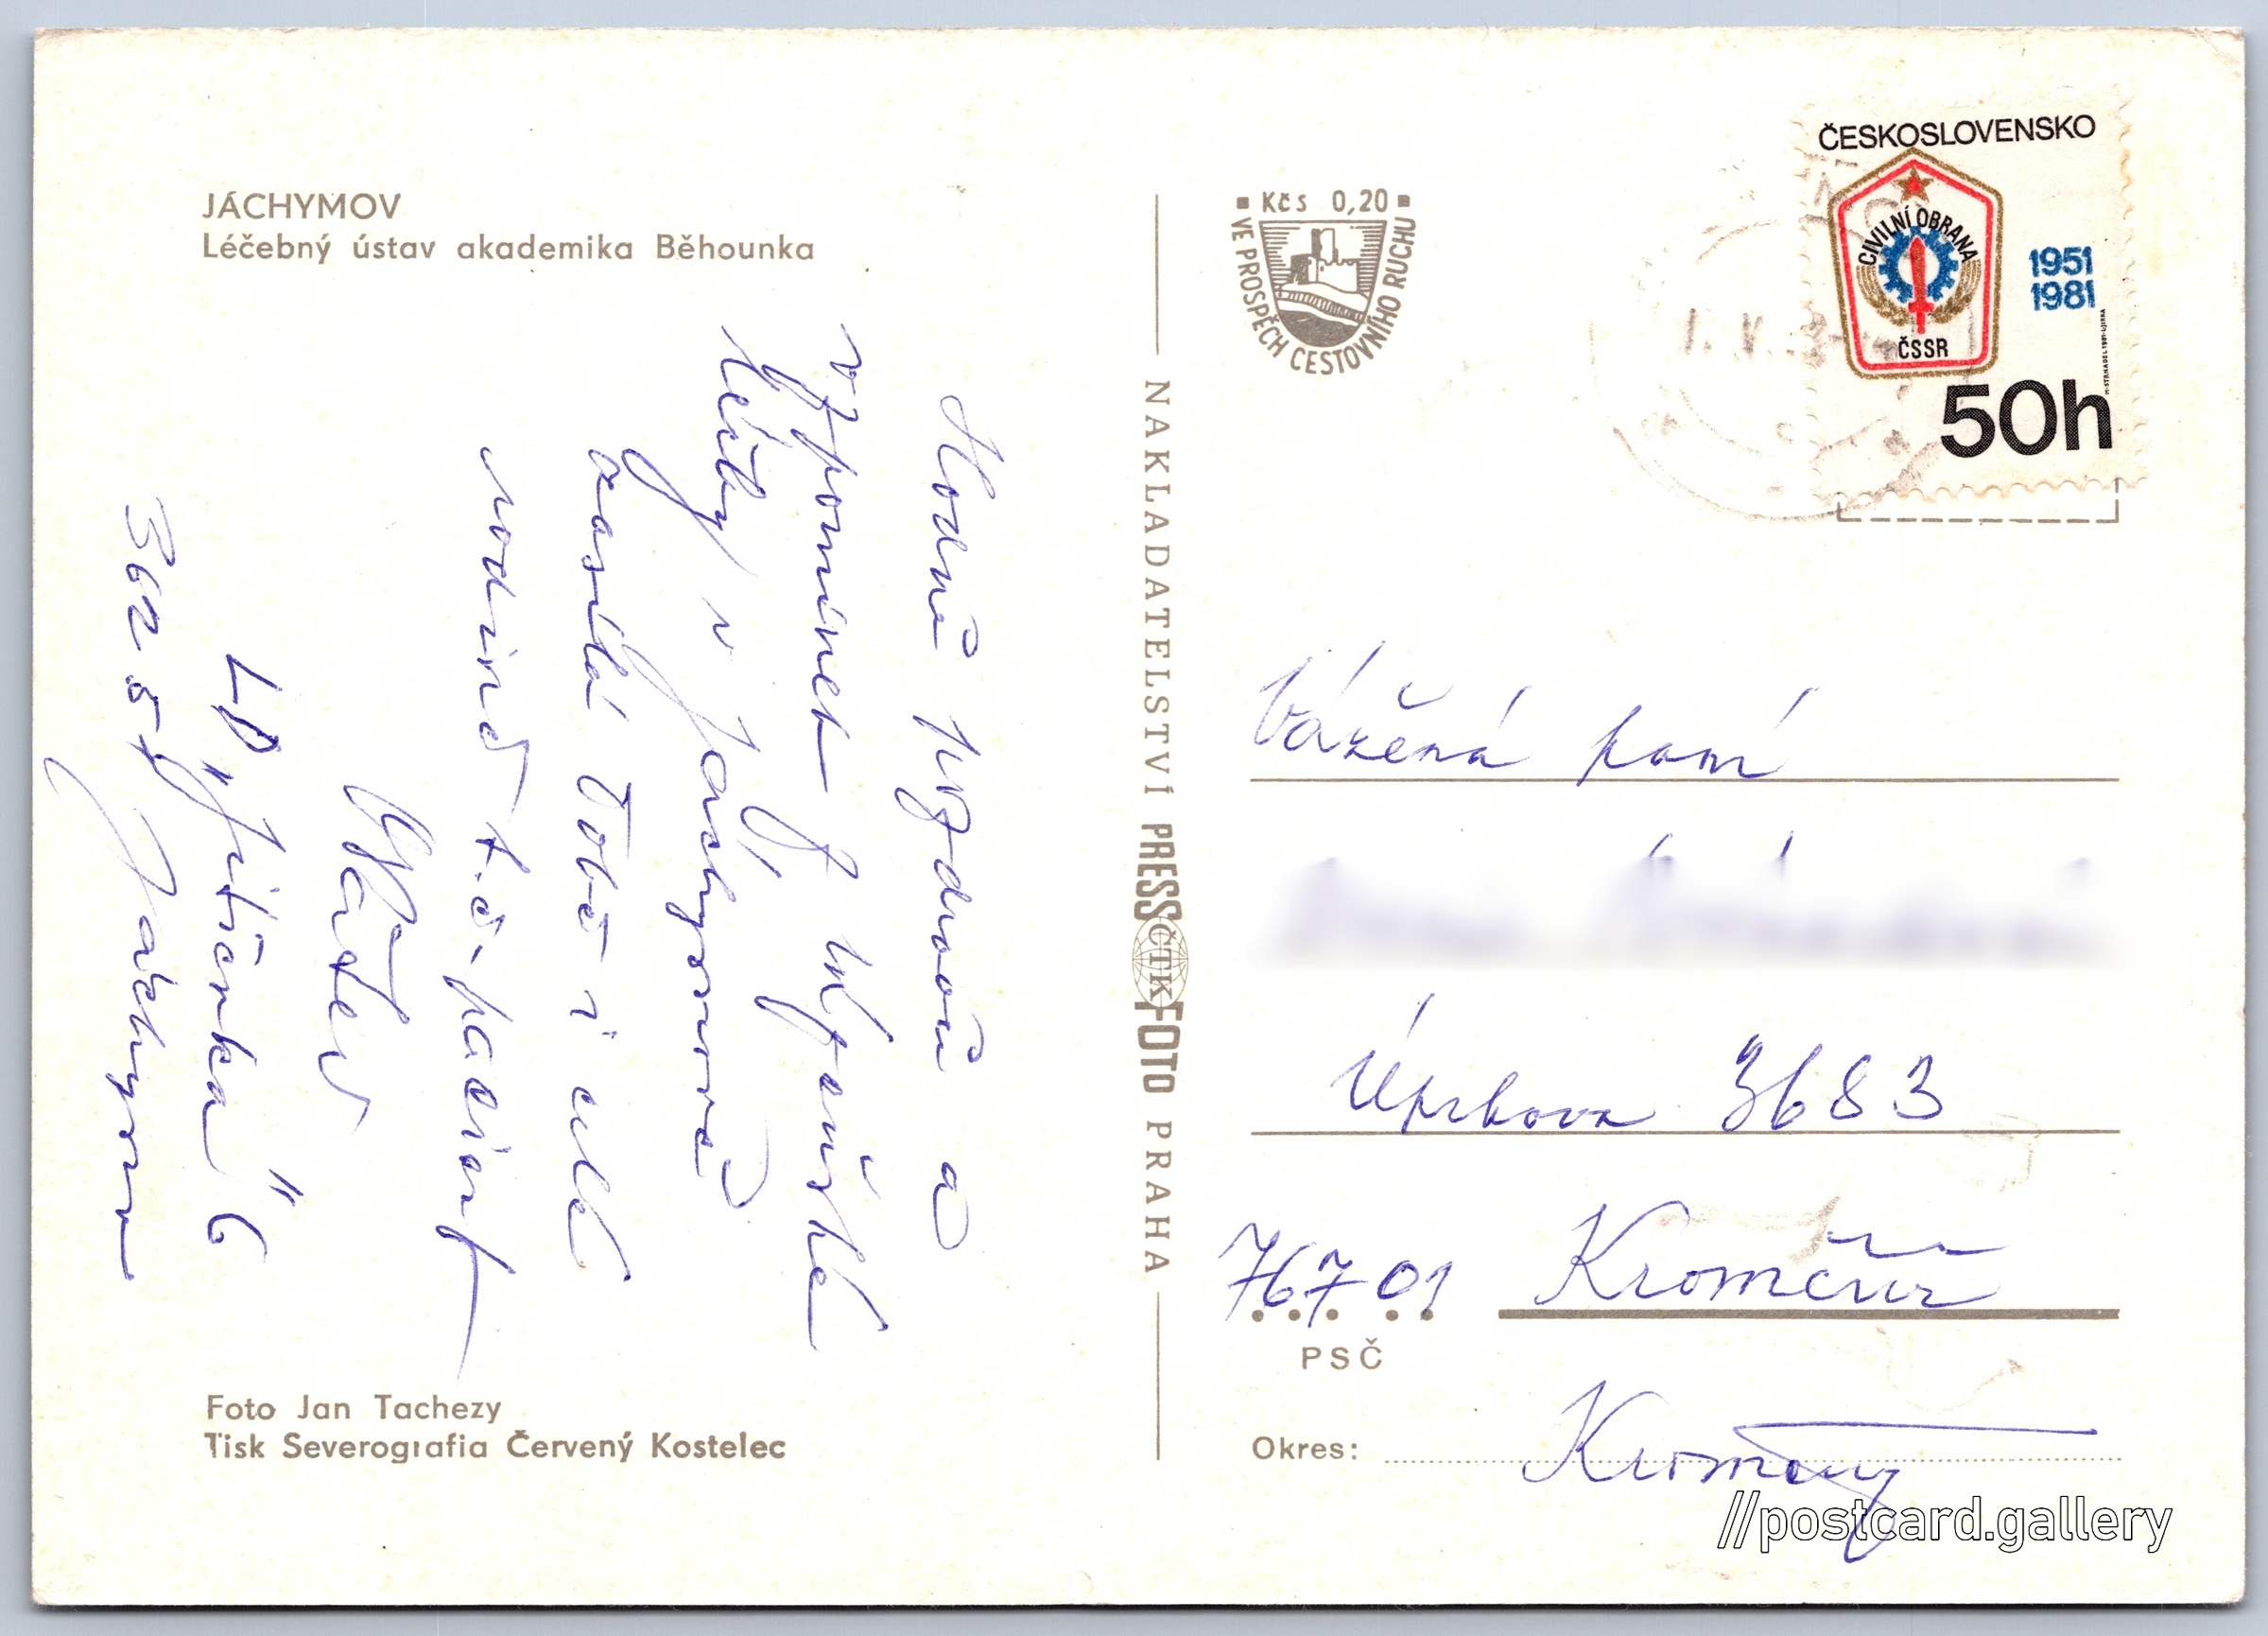 JÁCHYMOV
Léčebný ústav akademika Běhounka
Hodně pozdravů a
vzpomínek z
léčby v Jáchymově
zasílá Tobě i celé
rodině t.č. pacient
LD "Jitřenka" 6
362 51 Jáchymov
Foto Jan Tachezy
Tisk Severografia Červený Kostelec
NAKLADATELSTVÍ PRESSFOTO PRAHA
ČTK
Kčs 0,20
VE PROSPĚCH CESTOVNÍHO RUCHU
ČESKOSLOVENSKO
CIVILNÍ OBRANA
ČSSR
1951
1981
50h
M. STRNADEL 1981 - L. JIRKA
Vážená paní
Úprkova 3683
767 01 Kroměříž
PSČ
Okres: Kroměříž
//postcard.gallery